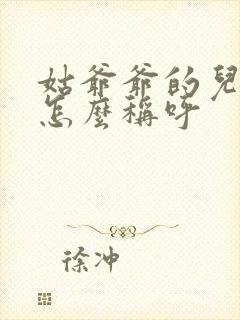 姑爺爺的兒
怎麼稱呼
徐冲